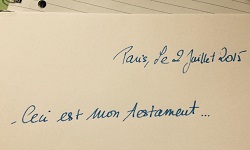 Paris, Le 2 Juillet 2015
- Ceci est mon testament...